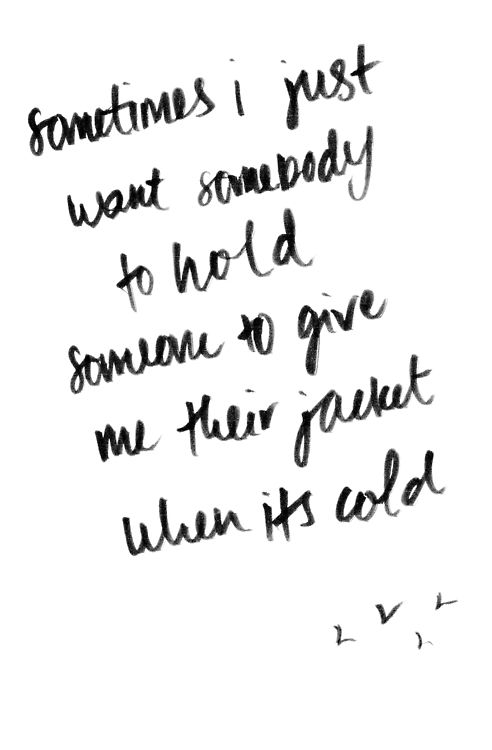 sometimes i just
want somebody
to hold
someone to give
me their jacket
when its cold